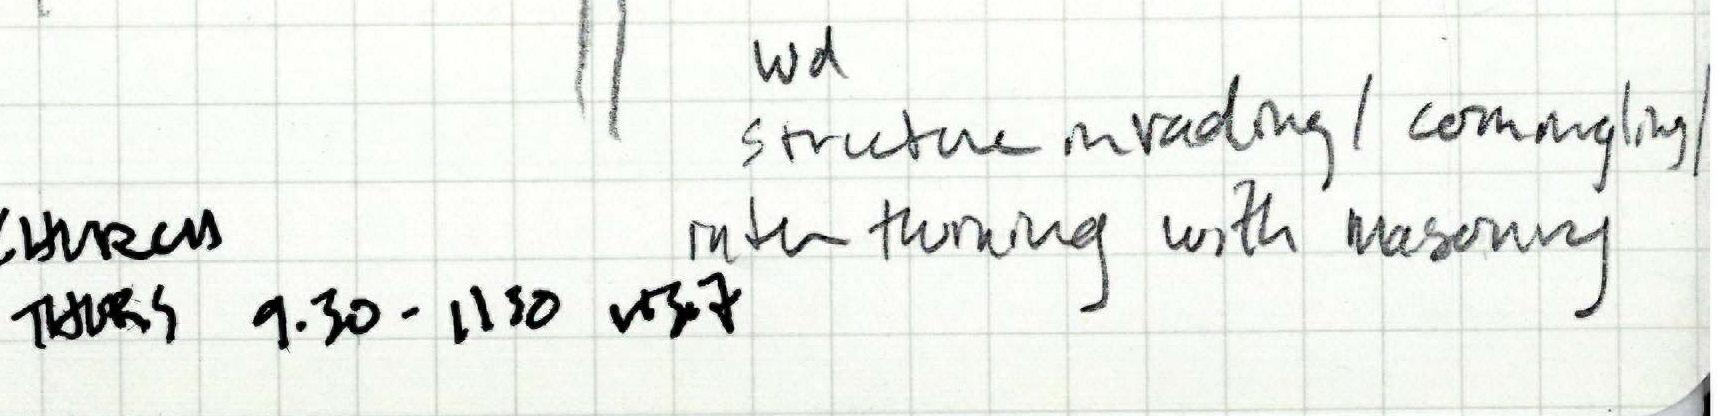 wd
structure invading / comingling /
inter twining with masonry
CHURCH
THURS 9.30 - 1130